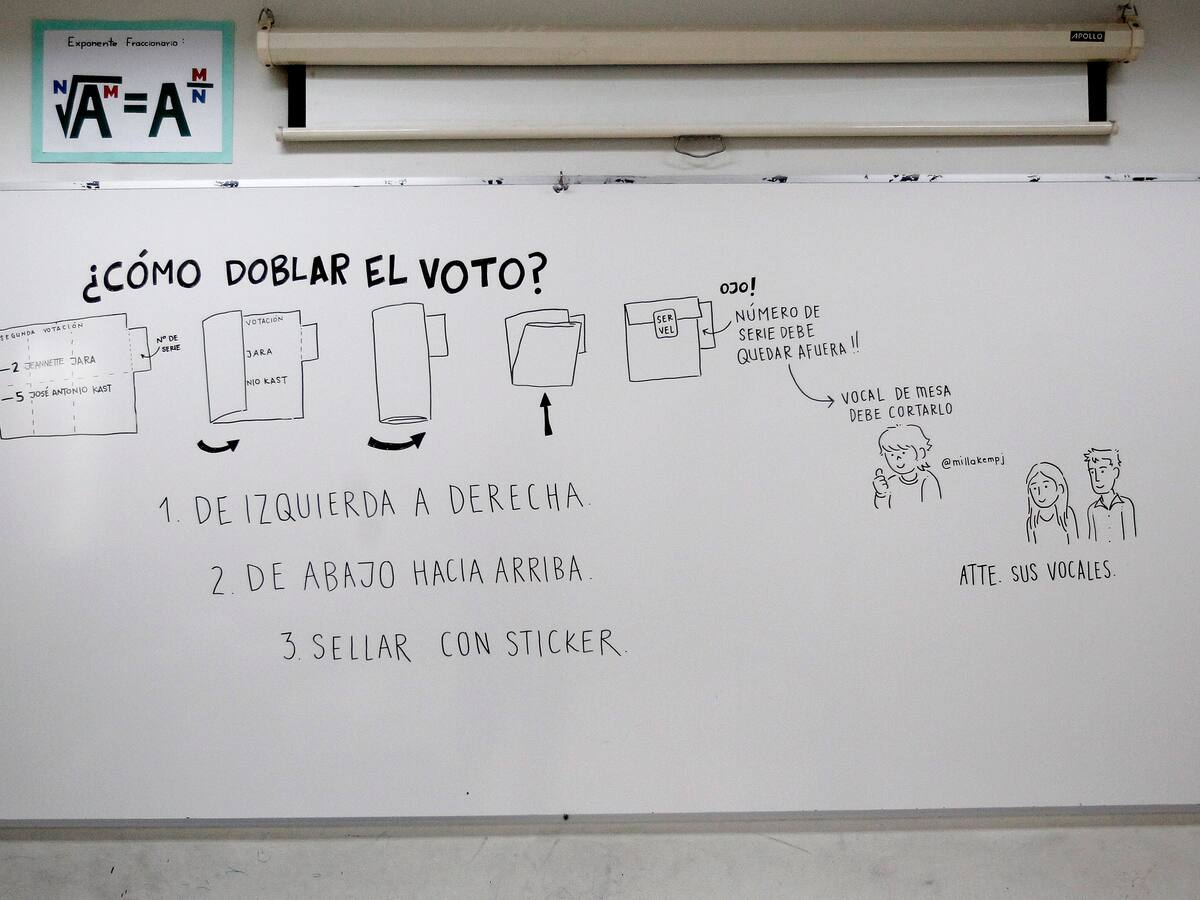 Exponente Fraccionario:
N√A^M = A^M/N
APOLLO
¿CÓMO DOBLAR EL VOTO?
SEGUNDA VOTACIÓN
—2 JEANNETTE JARA
—5 JOSÉ ANTONIO KAST
Nº DE
SERIE
VOTACIÓN
JARA
NIO KAST
SER
VEL
OJO!
NÚMERO DE
SERIE DEBE
QUEDAR AFUERA!!
VOCAL DE MESA
DEBE CORTARLO
@millakempj
ATTE. SUS VOCALES.
1. DE IZQUIERDA A DERECHA.
2. DE ABAJO HACIA ARRIBA.
3. SELLAR CON STICKER.